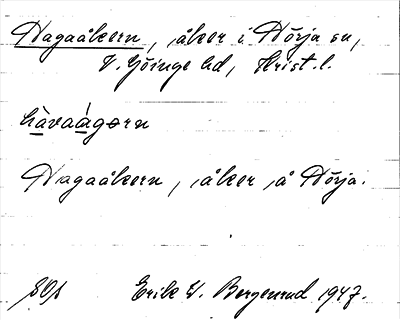 Hagaåkern, åker i Hörja sn,
V. Göinge hd, Krist. l.
hàvaágɵrn
Hagaåkern, åker å Hörja.
Erik W. Bergenrud 1947.